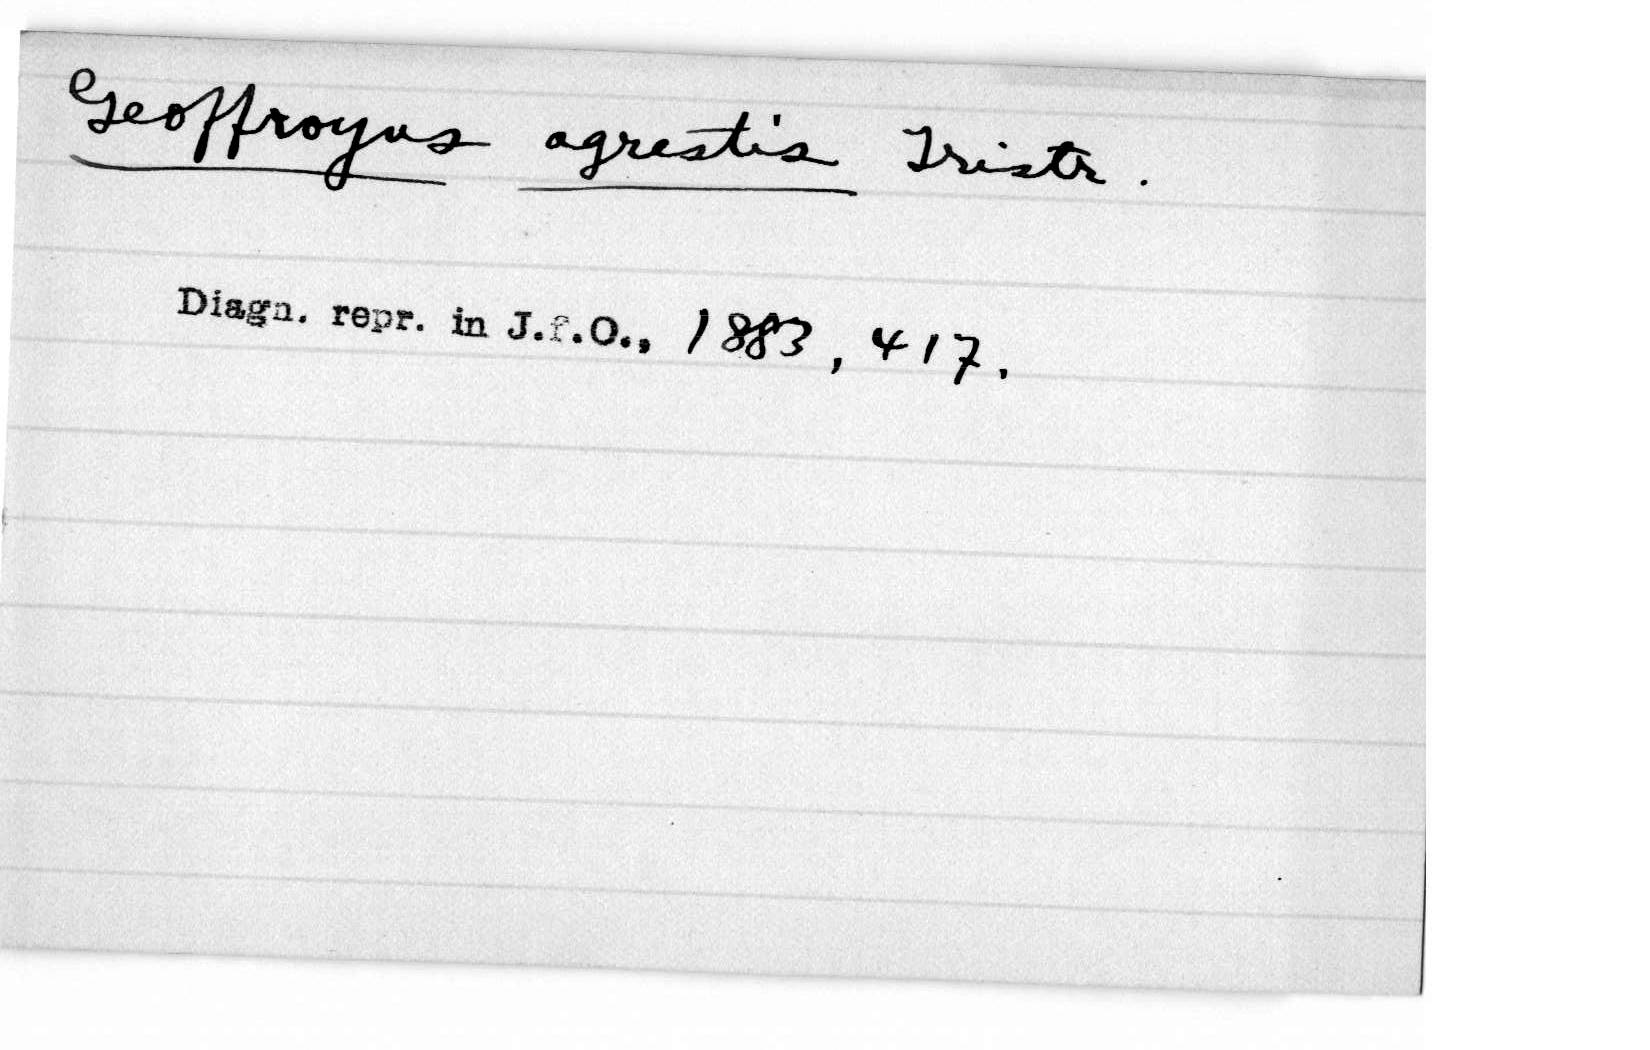 Geoffroyus agrestis Tristr.
Diagn. repr. in J.f.O., 1883, 417.